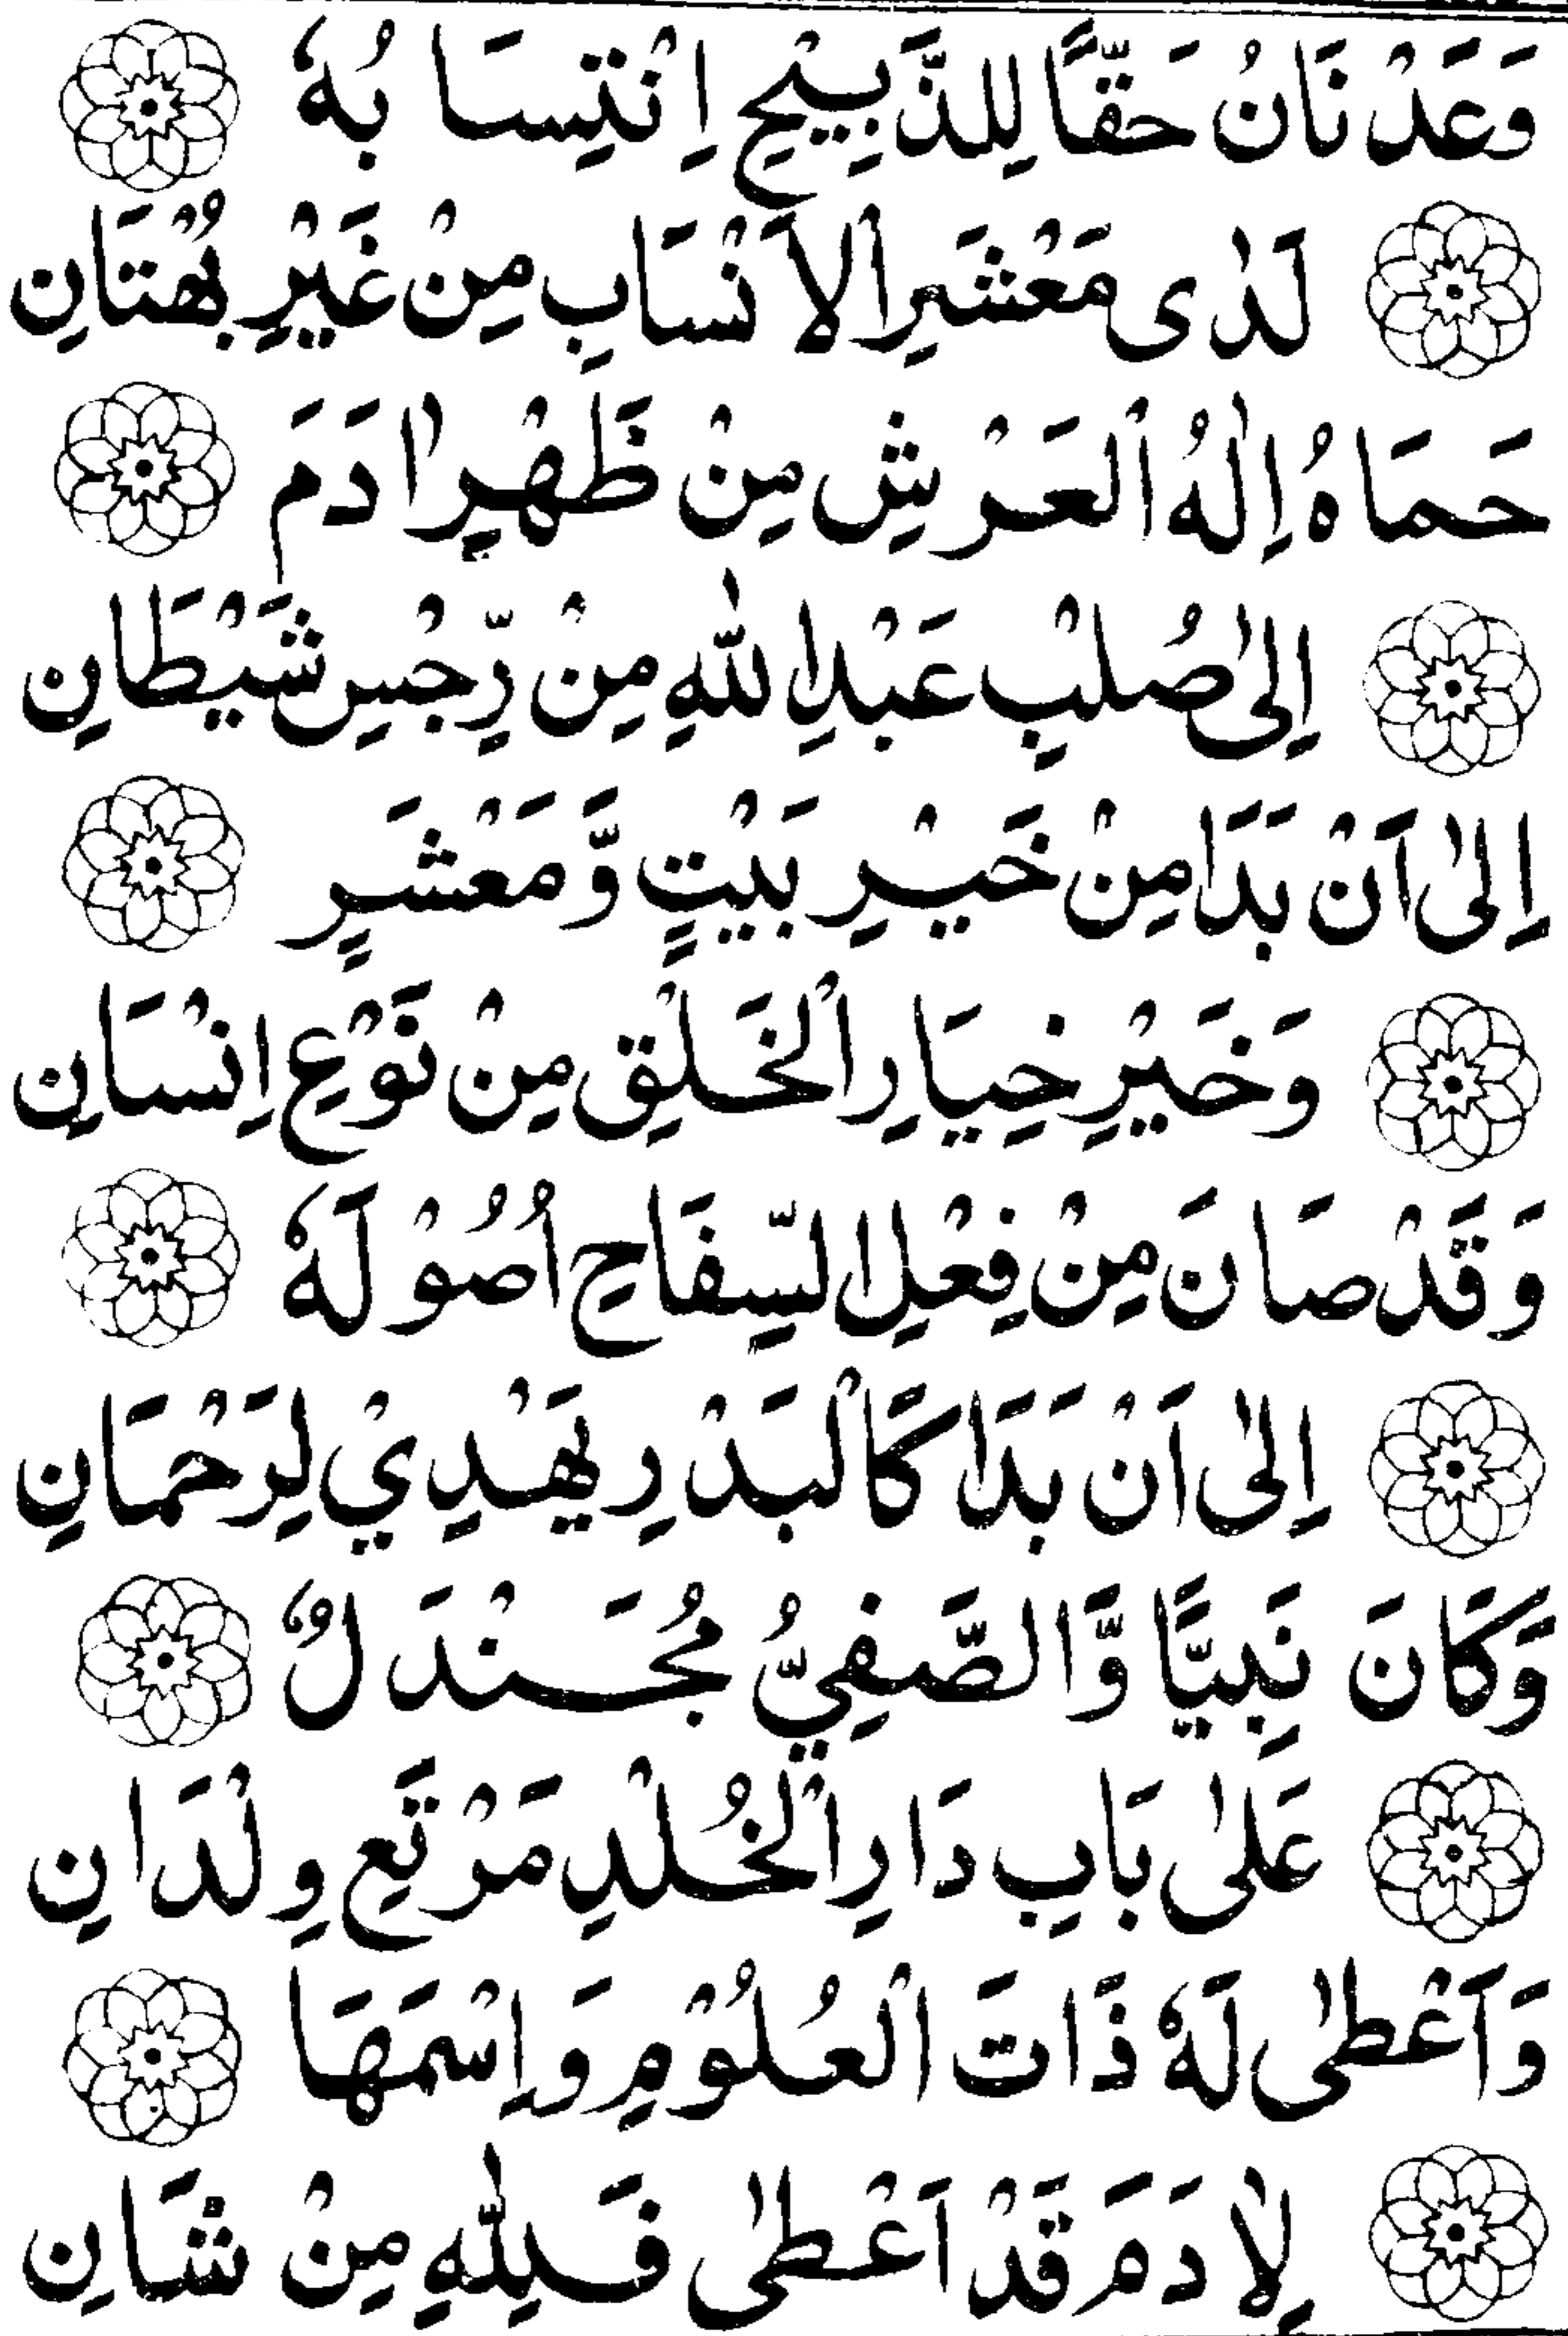 وَعَدْنَانُ حَقًّا لِلذَّبِيْحِ اِنْتِسَا بُهٗ
لَدٰى مَعْشَرِ الْاَنْسَابِ مِنْ غَيْرِ بُهْتَانِ
حَمَاهُ اِلٰهُ الْعَرْشِ مِنْ ظَهْرِ اٰدَمَ
اِلٰى صُلْبِ عَبْدِ اللّٰهِ مِنْ رِّجْسِ شَيْطَانِ
اِلٰى اَنْ بَدَا مِنْ خَيْرِ بَيْتٍ وَّمَعْشَرٍ
وَخَيْرِ خِيَارِ الْخَلْقِ مِنْ نَوْعِ اِنْسَانِ
وَقَدْ صَانَ مِنْ فِعْلِ السِّفَاحِ اُصُوْلَهٗ
اِلٰى اَنْ بَدَا كَالْبَدْرِ يَهْدِيْ لِرَحْمَانِ
وَّكَانَ نَبِيًّا وَّالصَّفِيُّ مُجَنْدَلٌ
عَلٰى بَابِ دَارِ الْخُلْدِ مَرْتَعِ وِلْدَانِ
وَاَعْطٰى لَهٗ ذَاتَ الْعُلُوْمِ وَاِسْمَهَا
لِاٰدَمَ قَدْ اَعْطٰى فَلِلّٰهِ مِنْ شَانِ